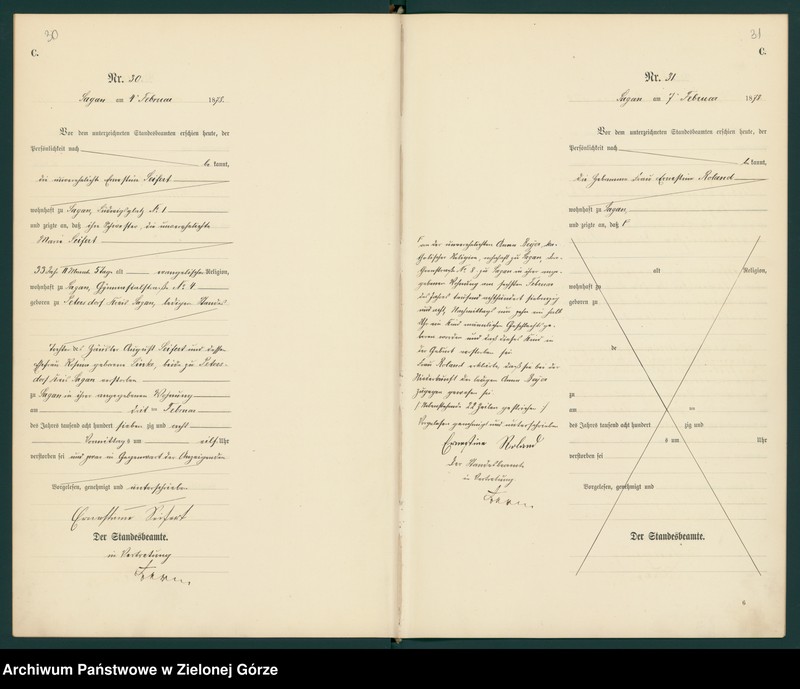 30
C.
Nr. 30
Sagan am 4ten Februar 1878.
Vor dem unterzeichneten Standesbeamten erschien heute, der
Persönlichkeit nach
be kannt,
die unverehelichte Ernestine Seifert
wohnhaft zu Sagan, Ludwigsplatz No 1
und zeigte an, daß ihre Schwester, die unverehelichte
Marie Seifert
33 Jahr 11 Monat 5 Tage alt evangelischer Religion,
wohnhaft zu Sagan, Gymnasialstraße No 4
geboren zu Petersdorf Kreis Sagan, ledigen Standes
Tochter des Häusler August Seifert und dessen
Ehefrau geborene beide zu Peters-
dorf Kreis Sagan verstorben
zu Sagan in ihrer angegebenen Wohnung
am drit ten Februar
des Jahres tausend acht hundert sieben zig und acht
Vormittags um eilf Uhr
verstorben sei und zwar in Gegenwart der Anzeigenden
Vorgelesen, genehmigt und unterschrieben
Ernestine Seifert
Der Standesbeamte.
in Vertretung
31
C.
Nr. 31
Sagan am 7ten Februar 1878
Vor dem unterzeichneten Standesbeamten erschien heute, der
Persönlichkeit nach
be kannt,
die Hebamme Frau Ernestine Roland
wohnhaft zu Sagan,
und zeigte an, daß
von der unverehelichten Anna ka-
tholischer Religion, wohnhaft zu Sagan
No 8 zu Sagan in ihrer ange-
gebenen Wohnung am sechsten Februar
des Jahres tausend achthundert siebenzig
und acht, Nachmittags um zehn ein halb
Uhr ein Kind männlichen Geschlechts ge-
boren worden und daß dieses Kind in
der Geburt verstorben sei
Frau Roland erklärte, daß sie bei der
Niederkunft der ledigen Anna
zugegen gewesen sei
22 Zeilen gestrichen
Vorgelesen genehmigt und unterschrieben
Ernestine Roland
Der Standesbeamte
in Vertretung
alt Religion,
wohnhaft zu
geboren zu
de
zu
am ten
des Jahres tausend acht hundert zig und
s um Uhr
verstorben sei
Vorgelesen, genehmigt und
Der Standesbeamte.
6
Archiwum Państwowe w Zielonej Górze